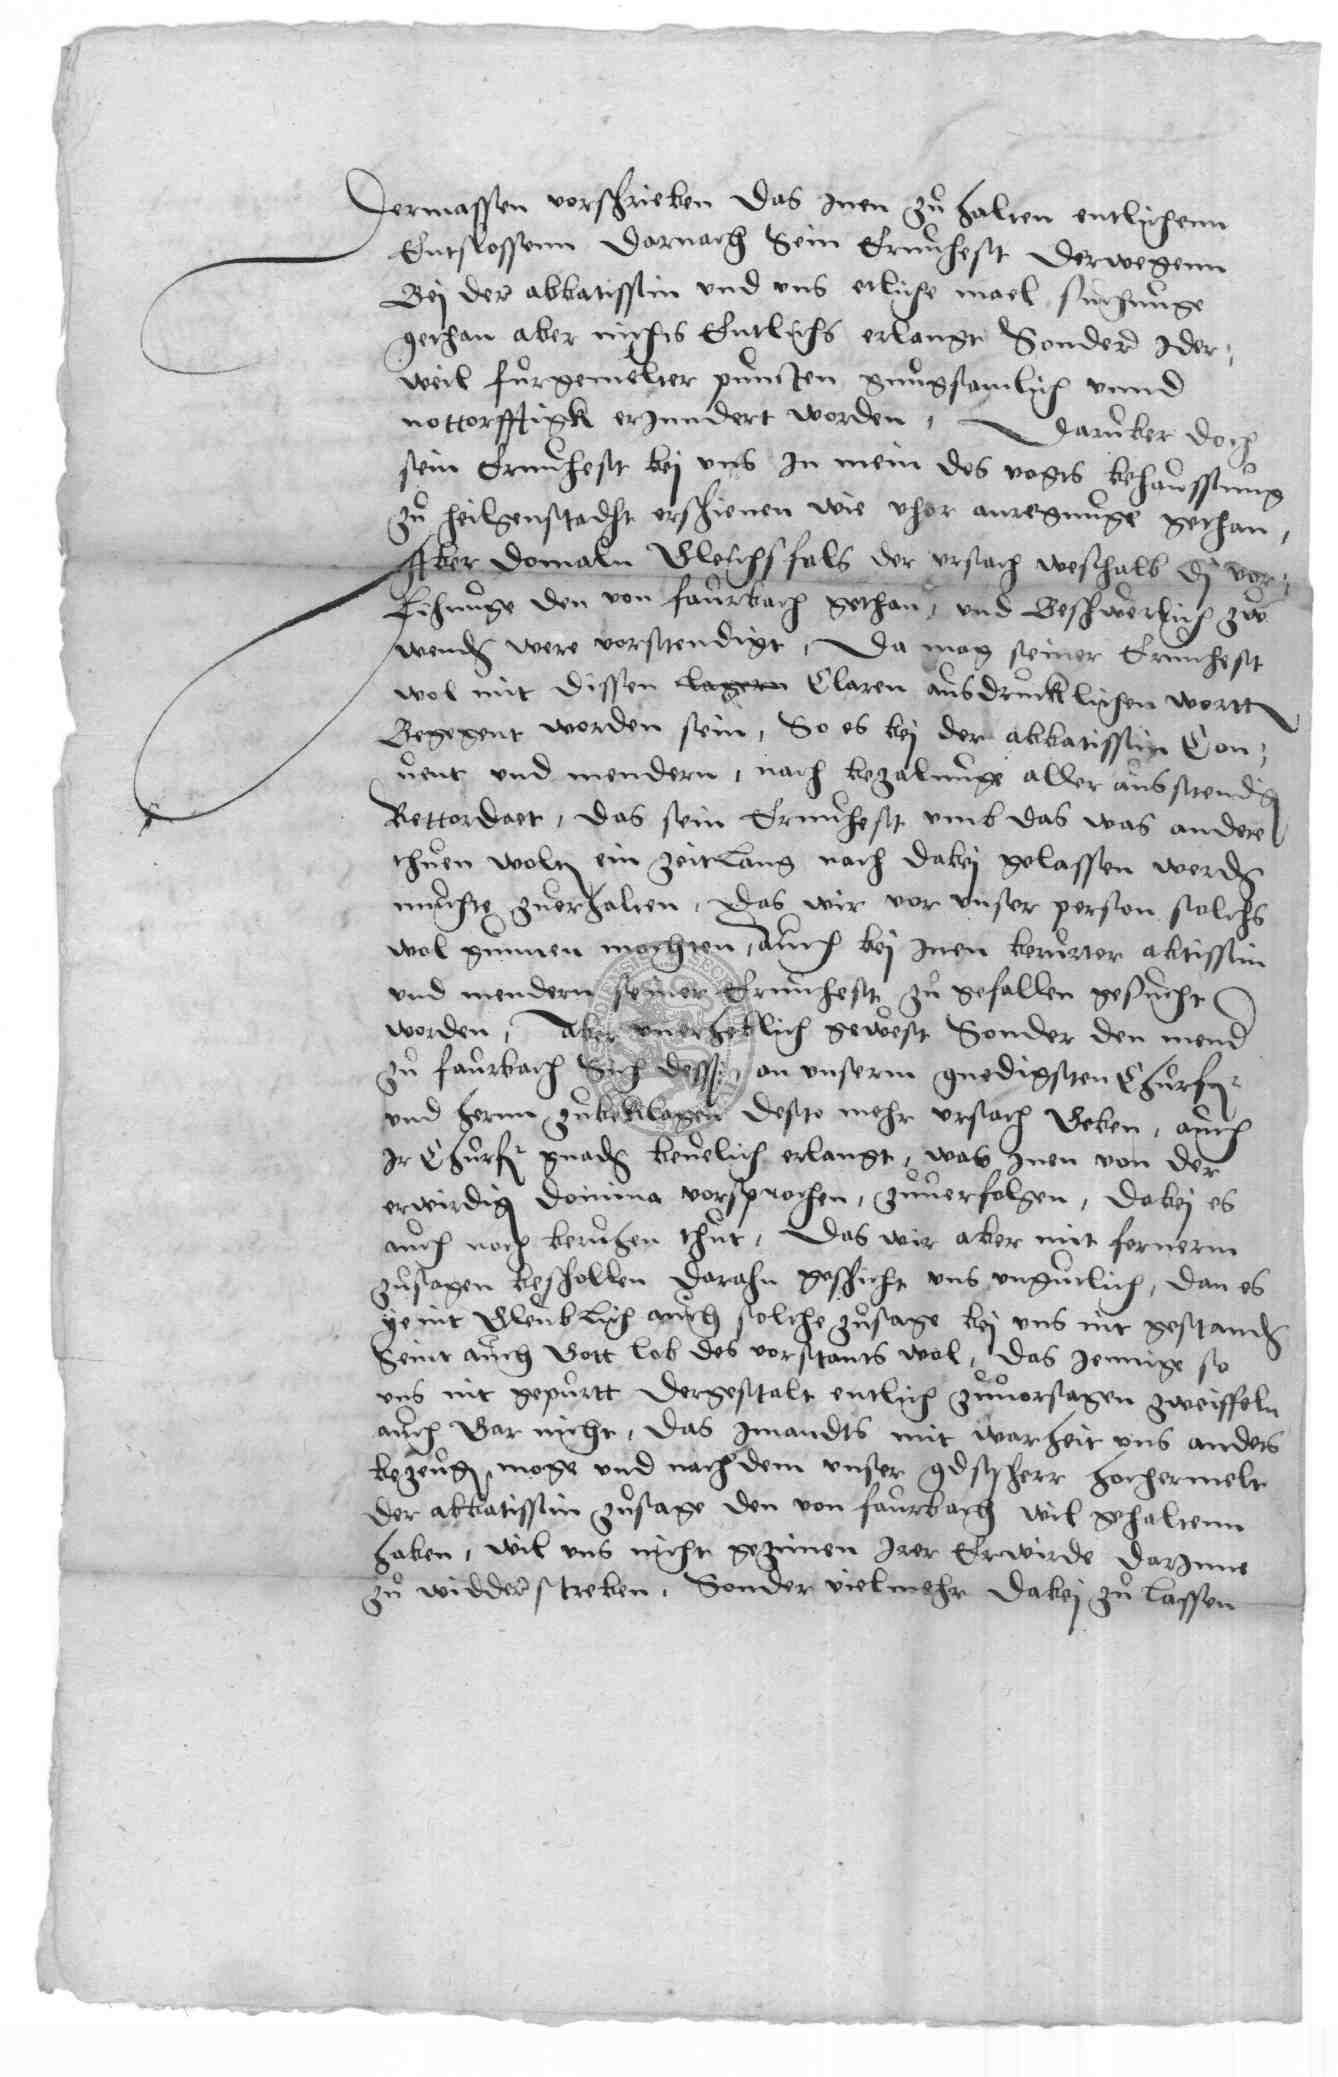 Dermassen vorschrieben Das Inen zů halten entlichenn
Entslossenn Darnach Sein Ernuhest Derwegenn
Bei der abbatissin und uns etliche mael suchunge
gethan aber nichts Entlichs erlangt Sonder Ider,
weil fůrgemelter puncten gnůgsamlich unnd
nottorfftigk erInndert worden, Darůber doch
sein Ernuhest bei uns In mein des vogts behaussung
zů heilgenstadht erschienen wie vhor anregunge gethan,
Aber domaln Gleichsfals der ursach weshalb di vor,
Lihunge den von faurbach gethan, und Beschwerlich zw
wenden were vorstendigt, Da mag seiner Ernuhest
wol mit dissen lagern Claren ausdrucklichen wortten
Begegent worden sein, So es bei der abbatissin Con,
vent und mendern, nach bezalunge aller ausstendigen
Rettordaet, Das sein Ernuhest umb das was andere
thuen wolten ein zeitlang nach dabei gelassen werden
muchte zuerhalten, Das wir vor unser person solchs
wol gunnen mochten, auch bei Inen berurter abtissin
und mendern seiner Ernuhest zů gefallen gesucht
worden, Aber unerheblich gewest Sonder den mendern
zů faurbach Sich dess an unserm gnedigsten Churfr
und hernn zůbeklagen desto mehr ursach Geben, auch
Ir Churfr gnaden beuelich erlangt, was Inen von der
erwirdigen domina vorsprochen, zůuerfolgen, dabei es
auch noch beruhen thut, Das wir aber mit fernerm
zůsagen bescholten Darahn geschicht uns ungutlich, Dan es
ye nit Gleublich auch solche zůsage bei uns nit gestanden
Seint auch Gott lob des vorstants wol, Das Jennige so
uns nit gepurtt Dergestalt entlich zůuorsagen zweiffeln
auch Gar nicht, Das Imandts mit warheit uns anders
bezeugen moge und nach dem unser gdstr herr hochermelt
der abbatissin zůsage den von faurbach wil gehaltenn
haben, wil uns nicht gezimen Irer Erwirde darInne
zů widderstreben, Sonder vielmehr dabei zů lassen